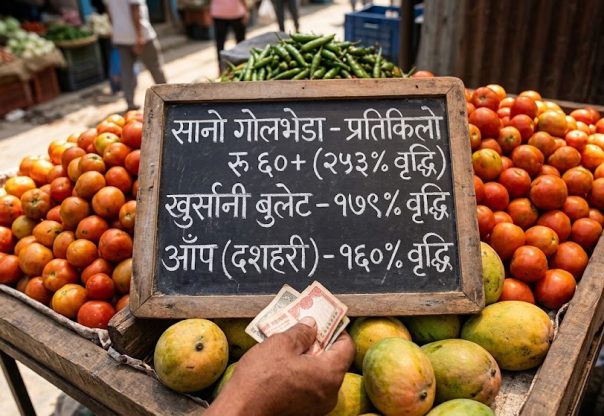 सानो गोलभेडा - प्रतिकिलो
रू ६०+ (२५३% वृद्धि)
खुर्सानी बुलेट - १७९% वृद्धि
आँप (दशहरी) - १६०% वृद्धि